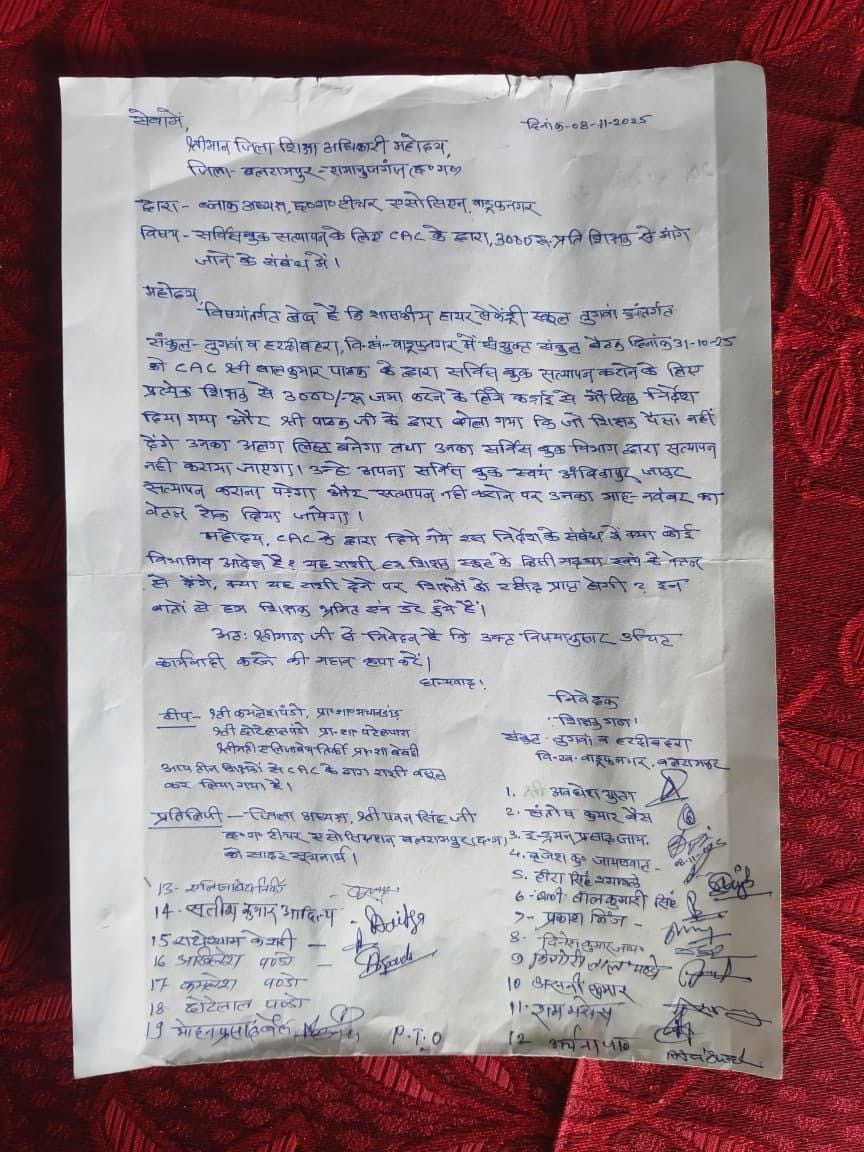 सेवामें,
दिनांक-08-11-2025
श्रीमान जिला शिक्षा अधिकारी महोदय,
जिला- बलरामपुर-रामानुजगंज (छ०ग०)
द्वारा- ब्लाक अध्यक्ष, छ०ग० टीचर एसोसिएशन, वाड्रफनगर
विषय- सर्विस बुक सत्यापन के लिए CAC के द्वारा, 3000रू. प्रति शिक्षक से मांगे
जाने के संबंध में।
महोदय,
विषयांतर्गत लेख है कि शासकीय हायर सेकेंड्री स्कूल तुगवां अंतर्गत
संकुल- तुगवां व हरदीबहरा, वि.खं.-वाड्रफनगर में संयुक्त संकुल बैठक दिनांक 31-10-25
को CAC श्री बालकुमार पाठक के द्वारा सर्विस बुक सत्यापन कराने के लिए
प्रत्येक शिक्षक से 3000/-रू जमा करने के लिये कड़ाई से मौखिक निर्देश
दिया गया और श्री पाठक जी के द्वारा बोला गया कि जो शिक्षक पैसा नहीं
देंगे उनका अलग लिस्ट बनेगा तथा उनका सर्विस बुक विभाग द्वारा सत्यापन
नही कराया जाएगा। उन्हे अपना सर्विस बुक स्वयं अंबिकापुर जाकर
सत्यापन कराना पड़ेगा और सत्यापन नही कराने पर उनका माह- नवंबर का
वेतन रोक दिया जायेगा।
महोदय, CAC के द्वारा दिये गये इस निर्देश के संबंध में क्या कोई
विभागिय आदेश है? यह राशी हम शिक्षक स्कूल के किसी मद या स्वयं के वेतन
से देंगे, क्या यह राशी देने पर शिक्षकों को रसीद प्राप्त होगी? इन
बातों से हम शिक्षक भ्रमित एवं डरे हुये हैं।
अतः श्रीमान जी से निवेदन है कि उक्त विषयानुसार उचित
कार्यवाही करने की महान कृपा करें।
धन्यवाद!
टीप- श्री कमलेश पंडो, प्रा०शा०
श्री छोटेलाल पंडो प्रा०शा० पटेलपारा
श्रीमती एलिजाबेथ तिर्की प्रा०शा
आप तीन शिक्षकों से CAC के द्वारा राशी वसूल
कर लिया गया है।
प्रतिलिपी- जिला अध्यक्ष, श्री पवन सिंह जी
छ०ग० टीचर एसोसिएशन बलरामपुर (छ०ग)
को सादर सूचनार्थ।
निवेदक
शिक्षक गण।
संकुल- तुगवां व हरदीबहरा
वि.ख. वाड्रफनगर, बलरामपुर
1. श्री अवधेश गुप्ता
2. संतोष कुमार बैस
3. इन्द्रमन प्रसाद जाय.
4. बृजेश कु० जायसवाल
5. हीरा सिंह
6- श्रीमती बालकुमारी सिंह
7- प्रकाश मिंज
8- दिनेश कुमार जाय०
9 लाल पण्डो
10 अस्वनी कुमार
11. राम
12 अर्चना
13- एलिजाबेथ तिर्की
14. सतीश कुमार आदित्य
15 राधेश्याम केशरी
16 अखिलेश पण्डो
17 कमलेश पण्डो
18 छोटेलाल पण्डो
19 मोहन प्रसाद
P.T.O